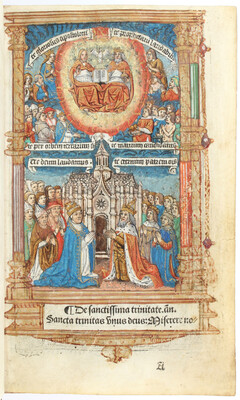 te gloriosus te prophetarum
te per orbem terrarum te martirum candidatus
Te deum laudamus te eternum patrem
¶ De sanctissima trinitate. añ.
Sancta trinitas vnus deus: Miserere no